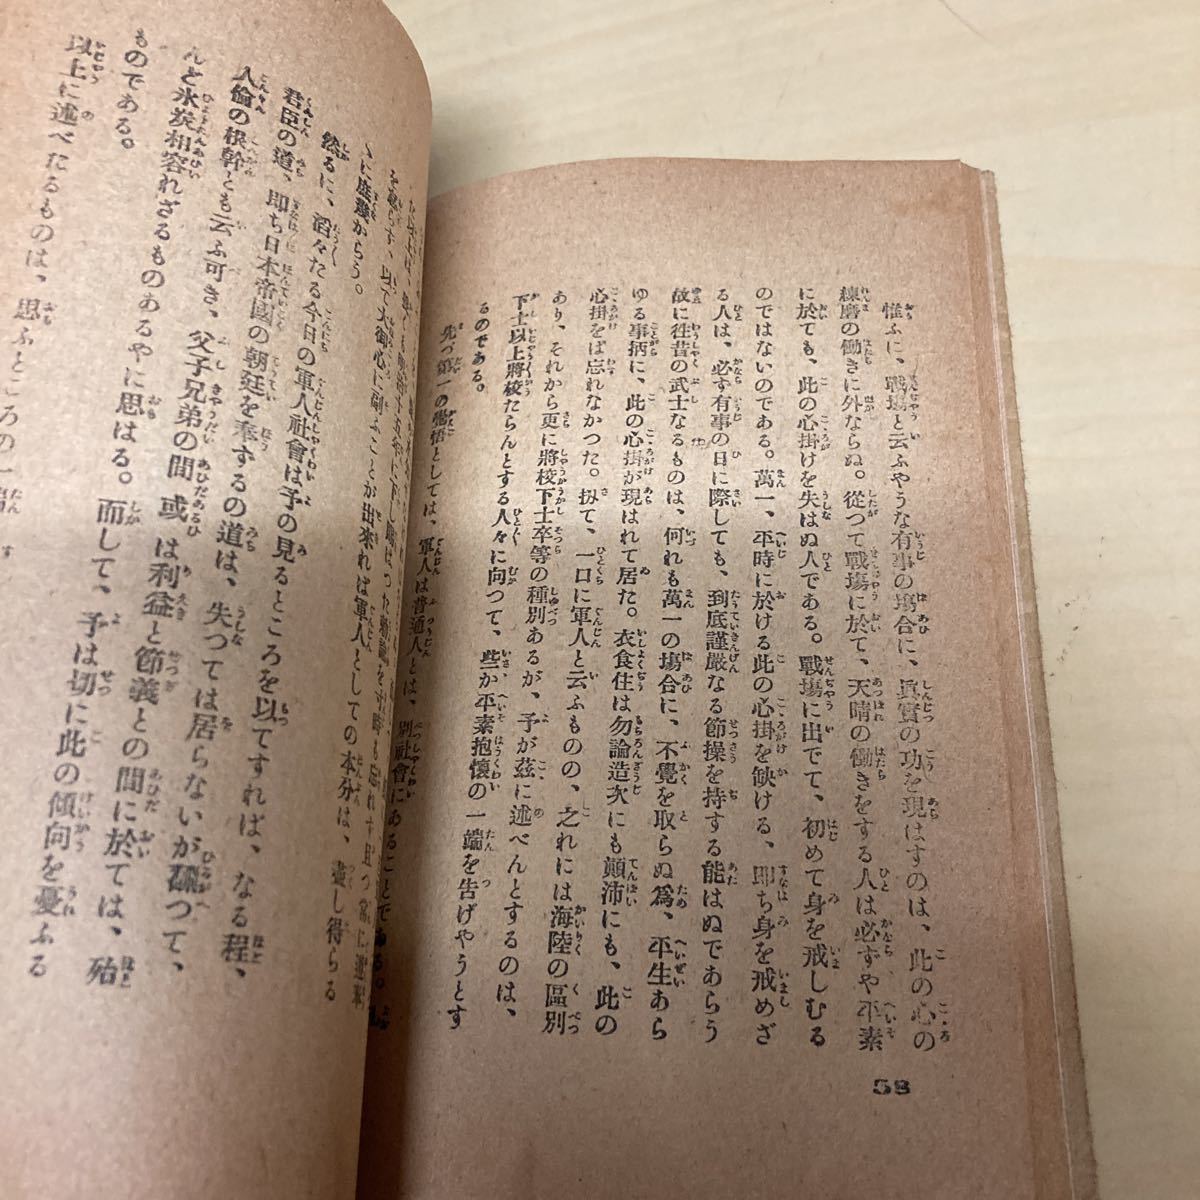 惟ふに、戰場と云ふやうな有事の場合に、眞實の功を現はすのは、此の心の
練磨の働きに外ならぬ。從つて戰場に於て、天晴の働きをする人は必ずや平素
に於ても、此の心掛けを失はぬ人である。戰場に出でて、初めて身を戒しむる
のではないのである。萬一、平時に於ける此の心掛を缺ける、即ち身を戒めざ
る人は、必ず有事の日に際しても、到底謹嚴なる節操を持する能はぬであらう
故に徃昔の武士なるものは、何れも萬一の場合に、不覺を取らぬ爲、平生あら
ゆる事柄に、此の心掛が現はれて居た。衣食住は勿論造次にも顛沛にも、此の
心掛をば忘れなかつた。扨て、一口に軍人と云ふものの、之れには海陸の區別
あり、それから更に將校下士卒等の種別あるが、予が茲に述べんとするのは、
下士以上將校たらんとする人々に向つて、些か平素抱懷の一端を告げやうとす
るのである。
先づ第一の覺悟としては、軍人は普通人とは、別社會にあることである。
58
を怠らず、以て大御心に副ふことが出來れば軍人としての本分は、盡し得らる
に庶幾からう。
然るに、滔々たる今日の軍人社會は予の見るところを以てすれば、なる程、
君臣の道、即ち日本帝國の朝廷を奉ずるの道は、失つては居らないが飜つて、
人倫の根幹とも云ふ可き、父子兄弟の間或は利益と節義との間に於ては、殆
んど氷炭相容れざるものあるやに思はる。而して、予は切に此の傾向を憂ふる
ものである。
以上に述べたるものは、思ふところの一